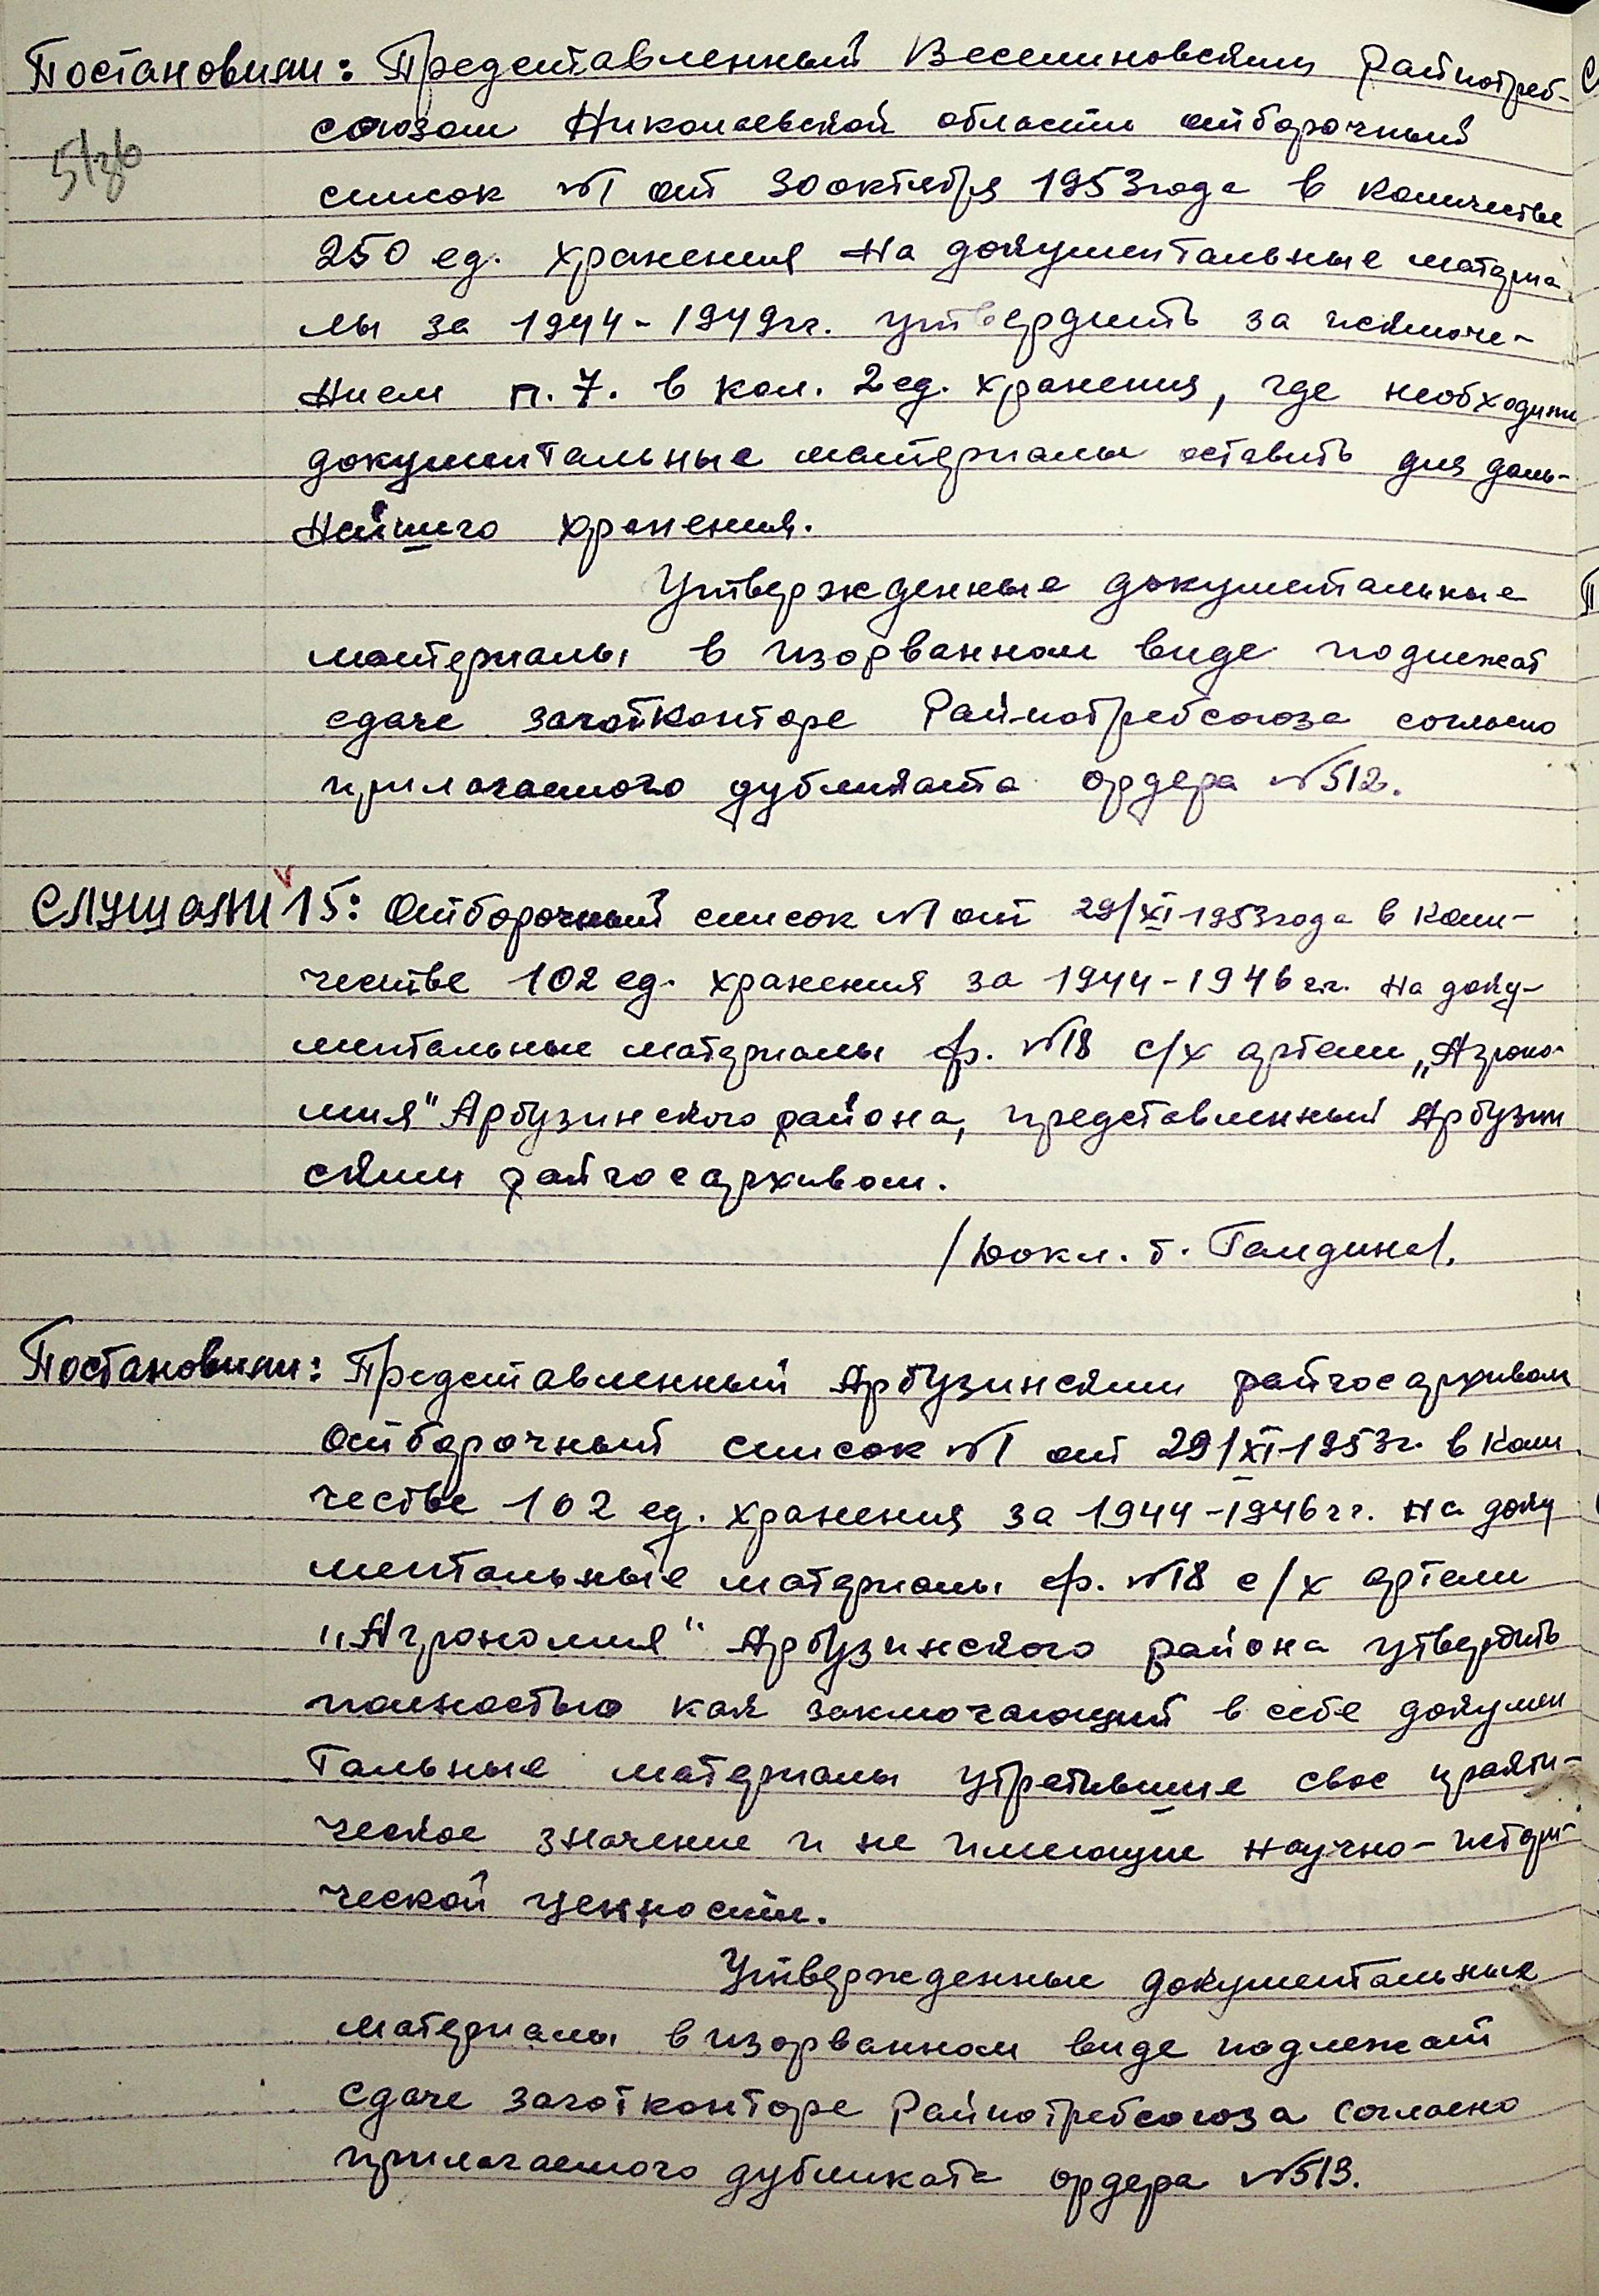 Постановили: Представленный Веселиновским Райпотреб-
союзом Николаевской области отборочный
список №1 от 30 октября 1953 года в количестве
250 ед. хранения на документальные материа
лы за 1944-1949гг. утвердить за исключе-
нием п. 7. в кол. 2 ед. хранения, где необходимо
документальные материалы оставить для даль-
нейшего хранения.
Утвержденные документальные
материалы в изорванном виде подлежат
сдаче заготконторе Райпотребсоюза согласно
прилагаемого дубликата ордера №512.
СЛУШАЛИ 15: Отборочный список №1 от 29/XI-1953 года в коли-
честве 102 ед. хранения за 1944-1946 г.г. на доку-
ментальные материалы ф. №18 с/х артели „Агроно-
мия" Арбузинского района, представленный Арбузин
ским райгосархивом.
/Докл. т. Гандина/.
Постановили: Представленный Арбузинским райгосархивом
отборочный список №1 от 29/XI-1953г. в коли
честве 102 ед. хранения за 1944-1946гг. на доку
ментальные материалы ф. №18 с/х артели
„Агрономия" Арбузинского района утвердить
полностью как заключающий в себе докумен
тальные материалы утратившие свое практи-
ческое значение и не имеющие научно-истори-
ческой ценности.
Утвержденные документальные
материалы в изорванном виде подлежат
сдаче заготконторе Райпотребсоюза согласно
прилагаемого дубликата ордера №513.